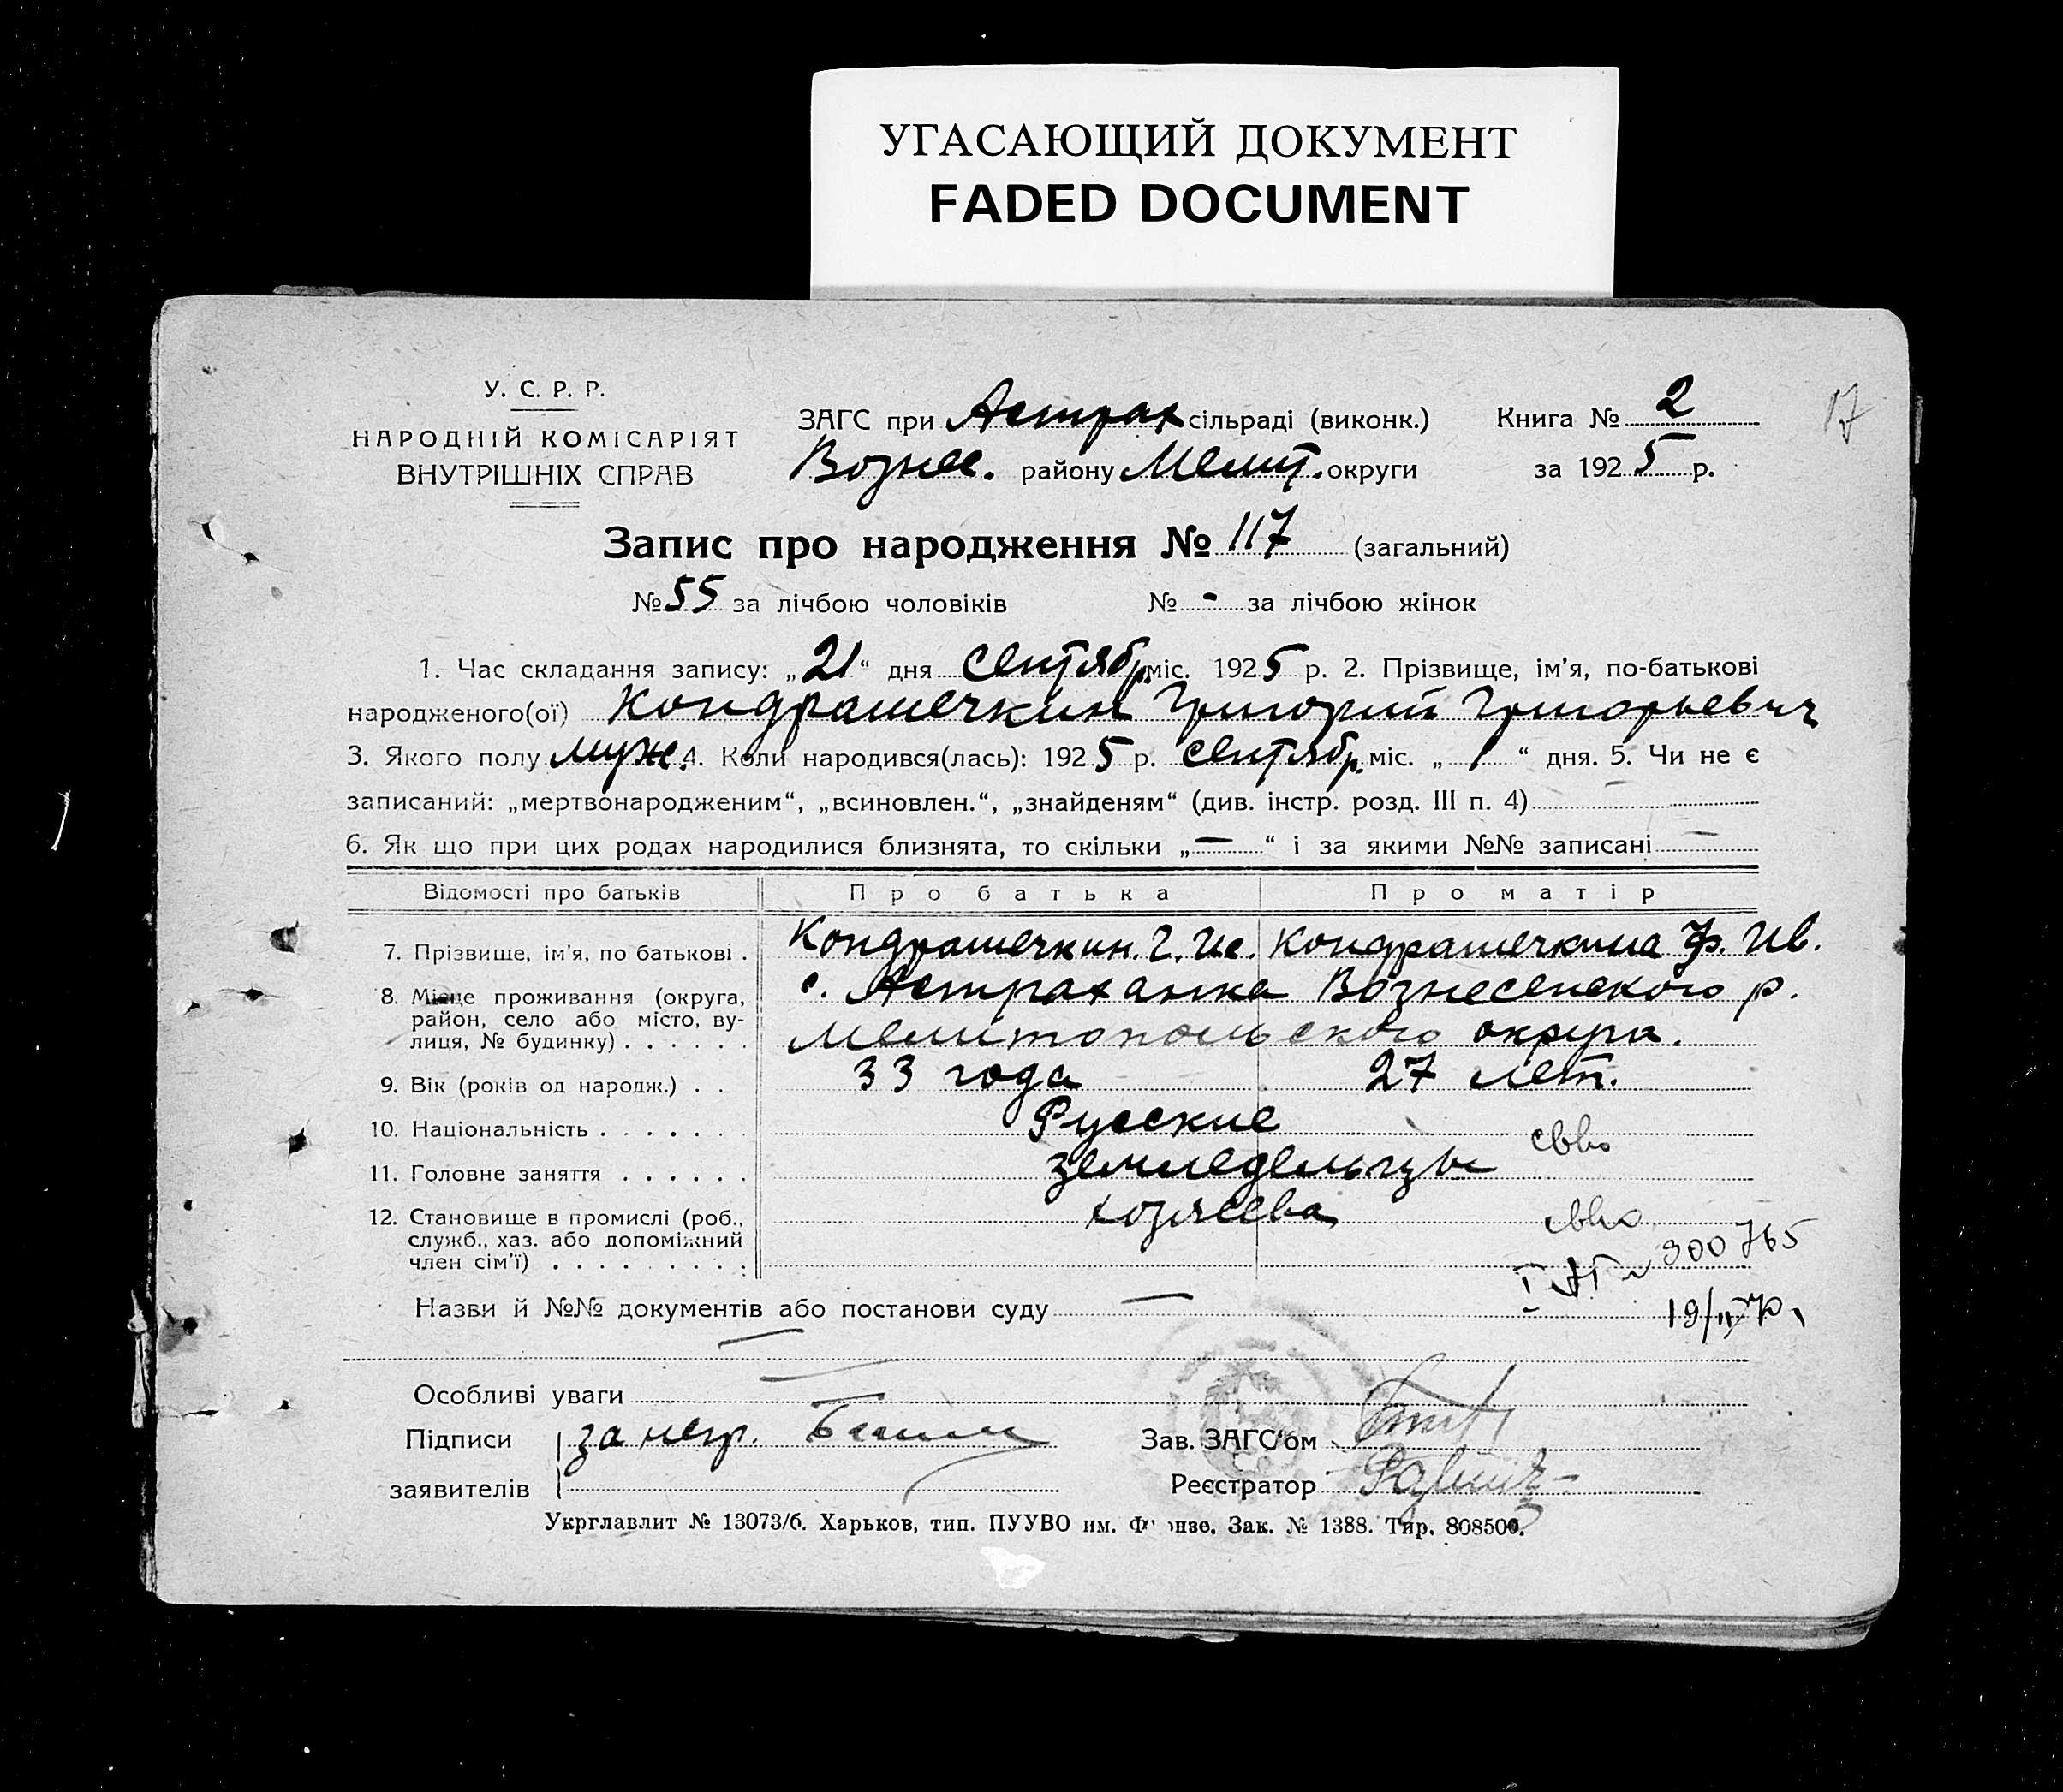 УГАСАЮЩИЙ ДОКУМЕНТ
FADED DOCUMENT
17
У. С. Р. Р.
НАРОДНІЙ КОМІСАРІЯТ
ВНУТРІШНІХ СПРАВ
ЗАГС при Астрах сільраді (виконк.) Книга № 2
Вознес. району Мелит. округи за 1925 р.
Запис про народження № 117 (загальний)
№ 55 за лічбою чоловіків № - за лічбою жінок
1. Час складання запису: „21“ дня сентябр. міс. 1925 р. 2. Прізвище, ім'я, по-батькові
народженого(ої) Кондрашечкин Григорий Григорьевич
3. Якого полу муж. 4. Коли народився(лась): 1925 р. сентябр. міс. „1“ дня. 5. Чи не є
записаний: „мертвонародженим“, „всиновлен.“, „знайденям“ (див. інстр. розд. III п. 4)
6. Як що при цих родах народилися близнята, то скільки „—“ і за якими №№ записані —
Відомості про батьків Про батька Про матір
7. Прізвище, ім'я, по батькові . Кондрашечкин. Г. Ив. Кондрашечкина Ф. Ив.
8. Місце проживання (округа, с. Астраханка Вознесенского р.
район, село або місто, ву-
лиця, № будинку) . . . . . . Мелитопольского округа.
9. Вік (років од народж.) . . 33 года 27 лет.
10. Національність . . . . . . . Русские
11. Головне заняття . . . . . . земледельцы
12. Становище в промислі (роб., хозяева
служб., хаз. або допоміжний
член сім'ї) . . . . . . . . .
900765
Назви й №№ документів або постанови суду —
—
Особливі уваги —
Підписи за негр.
заявителів
Зав. ЗАГС'ом
Реєстратор
Укрглавлит № 13073/б. Харьков, тип. ПУУВО им. Фрунзе. Зак. № 1388. Тир. 808500.